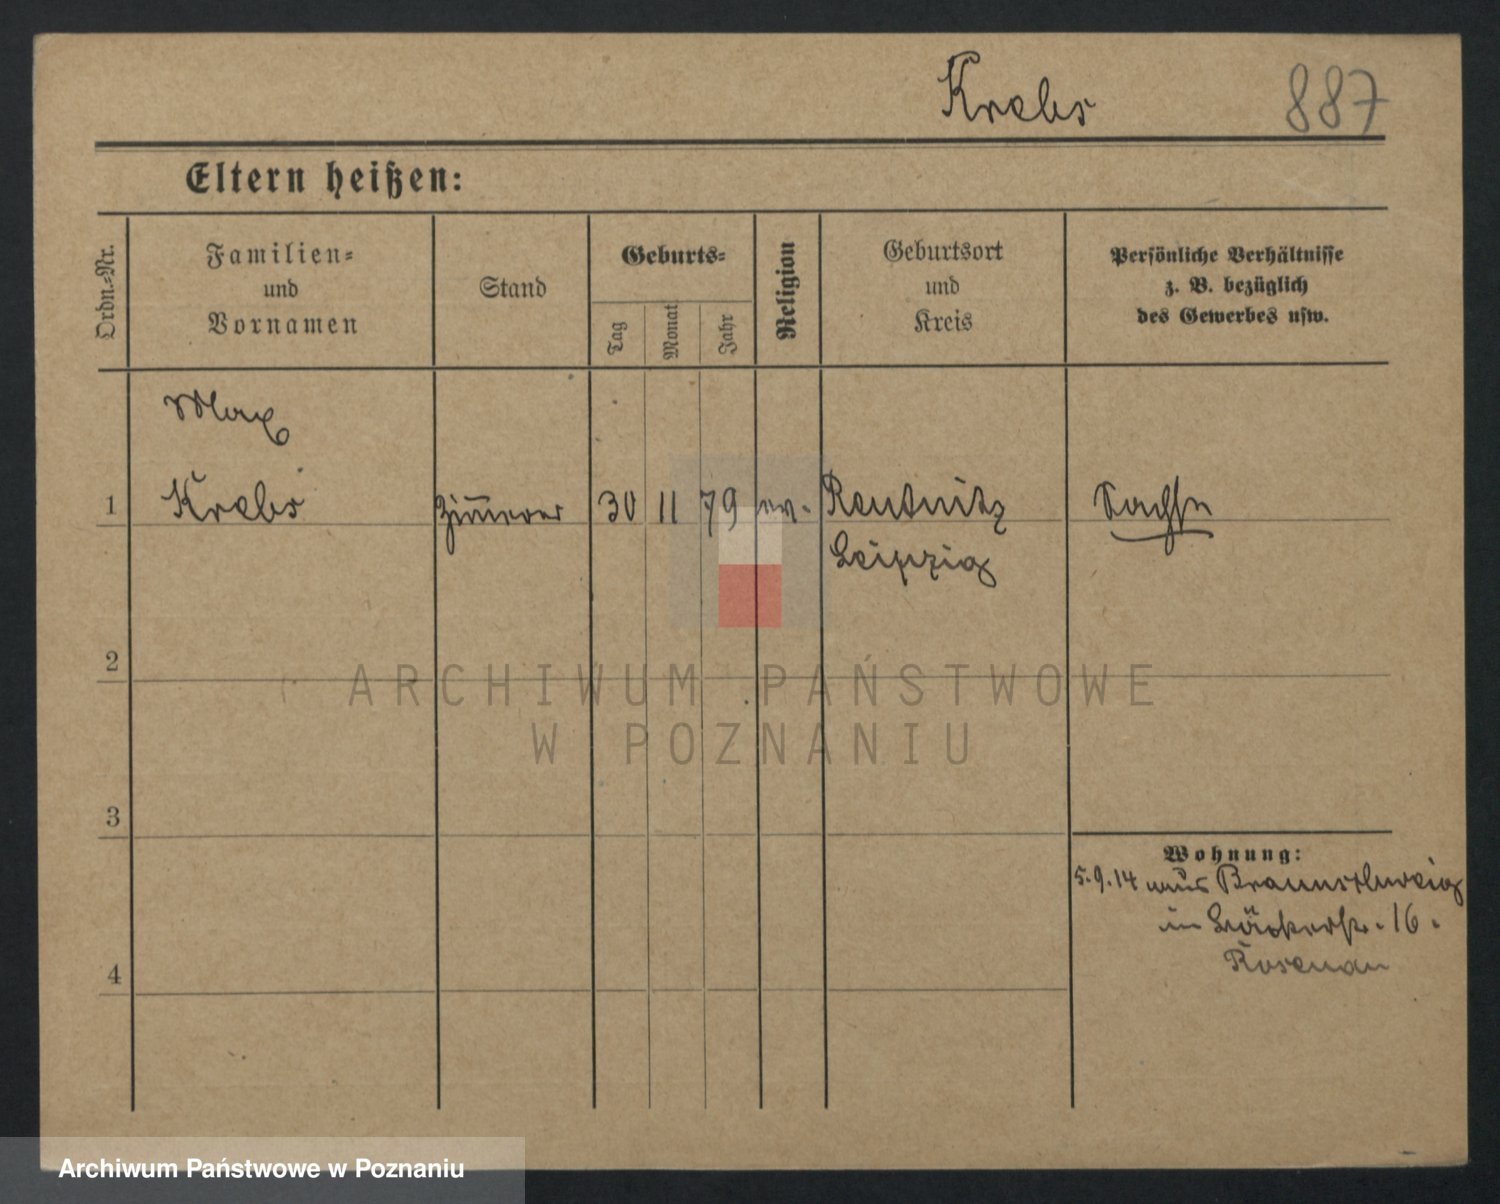 Krebs
887
Eltern heißen:
Ordn.-Nr.
Familien-
und
Vornamen
Stand
Geburts-
Tag
Monat
Jahr
Religion
Geburtsort
und
Kreis
Persönliche Verhältnisse
z. B. bezüglich
des Gewerbes usw.
Max
1 Krebs Zim̅erer 30 11 79 ev. Reudnitz Sachse
Leipzig
2
3
4
Wohnung:
5.9.14 aus Braunschweig
in 16.
Rosenau
ARCHIWUM PAŃSTWOWE
W POZNANIU
Archiwum Państwowe w Poznaniu